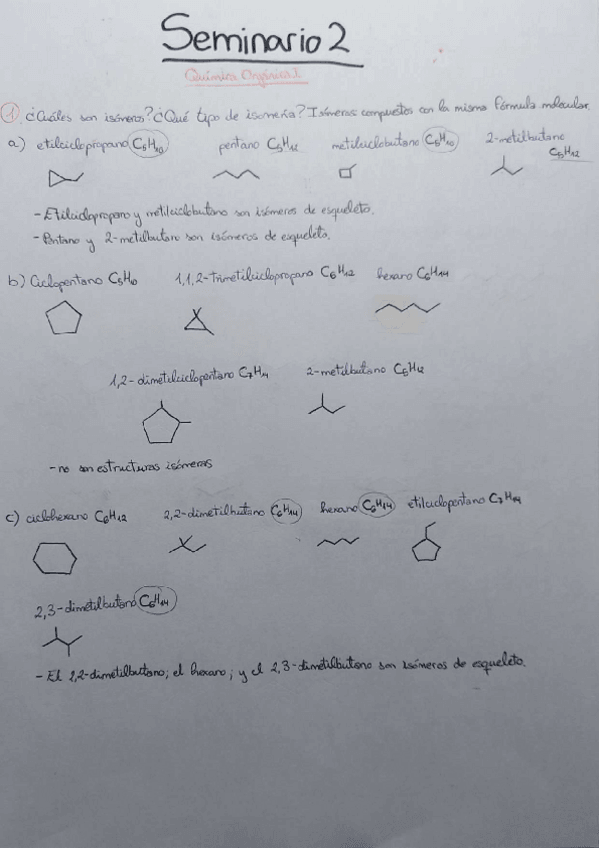 Seminario 2
Química Orgánica I.
1 ¿Cuáles son isómeros? ¿Qué tipo de isomería? Isómeros compuestos con la misma fórmula molecular.
a) etilciclopropano C₅H₁₀ pentano C₅H₁₂ metilciclobutano C₅H₁₀ 2-metilbutano C₅H₁₂
- Etilciclopropano y metilciclobutano son isómeros de esqueleto.
- Pentano y 2-metilbutano son isómeros de esqueleto.
b) Ciclopentano C₅H₁₀ 1,1,2-trimetilciclopropano C₆H₁₂ hexano C₆H₁₄
1,2-dimetilciclopentano C₇H₁₄ 2-metilbutano C₅H₁₂
- no son estructuras isómeras
c) ciclohexano C₆H₁₂ 2,2-dimetilbutano C₆H₁₄ hexano C₆H₁₄ etilciclopentano C₇H₁₄
2,3-dimetilbutano C₆H₁₄
- El 2,2-dimetilbutano; el hexano; y el 2,3-dimetilbutano son isómeros de esqueleto.